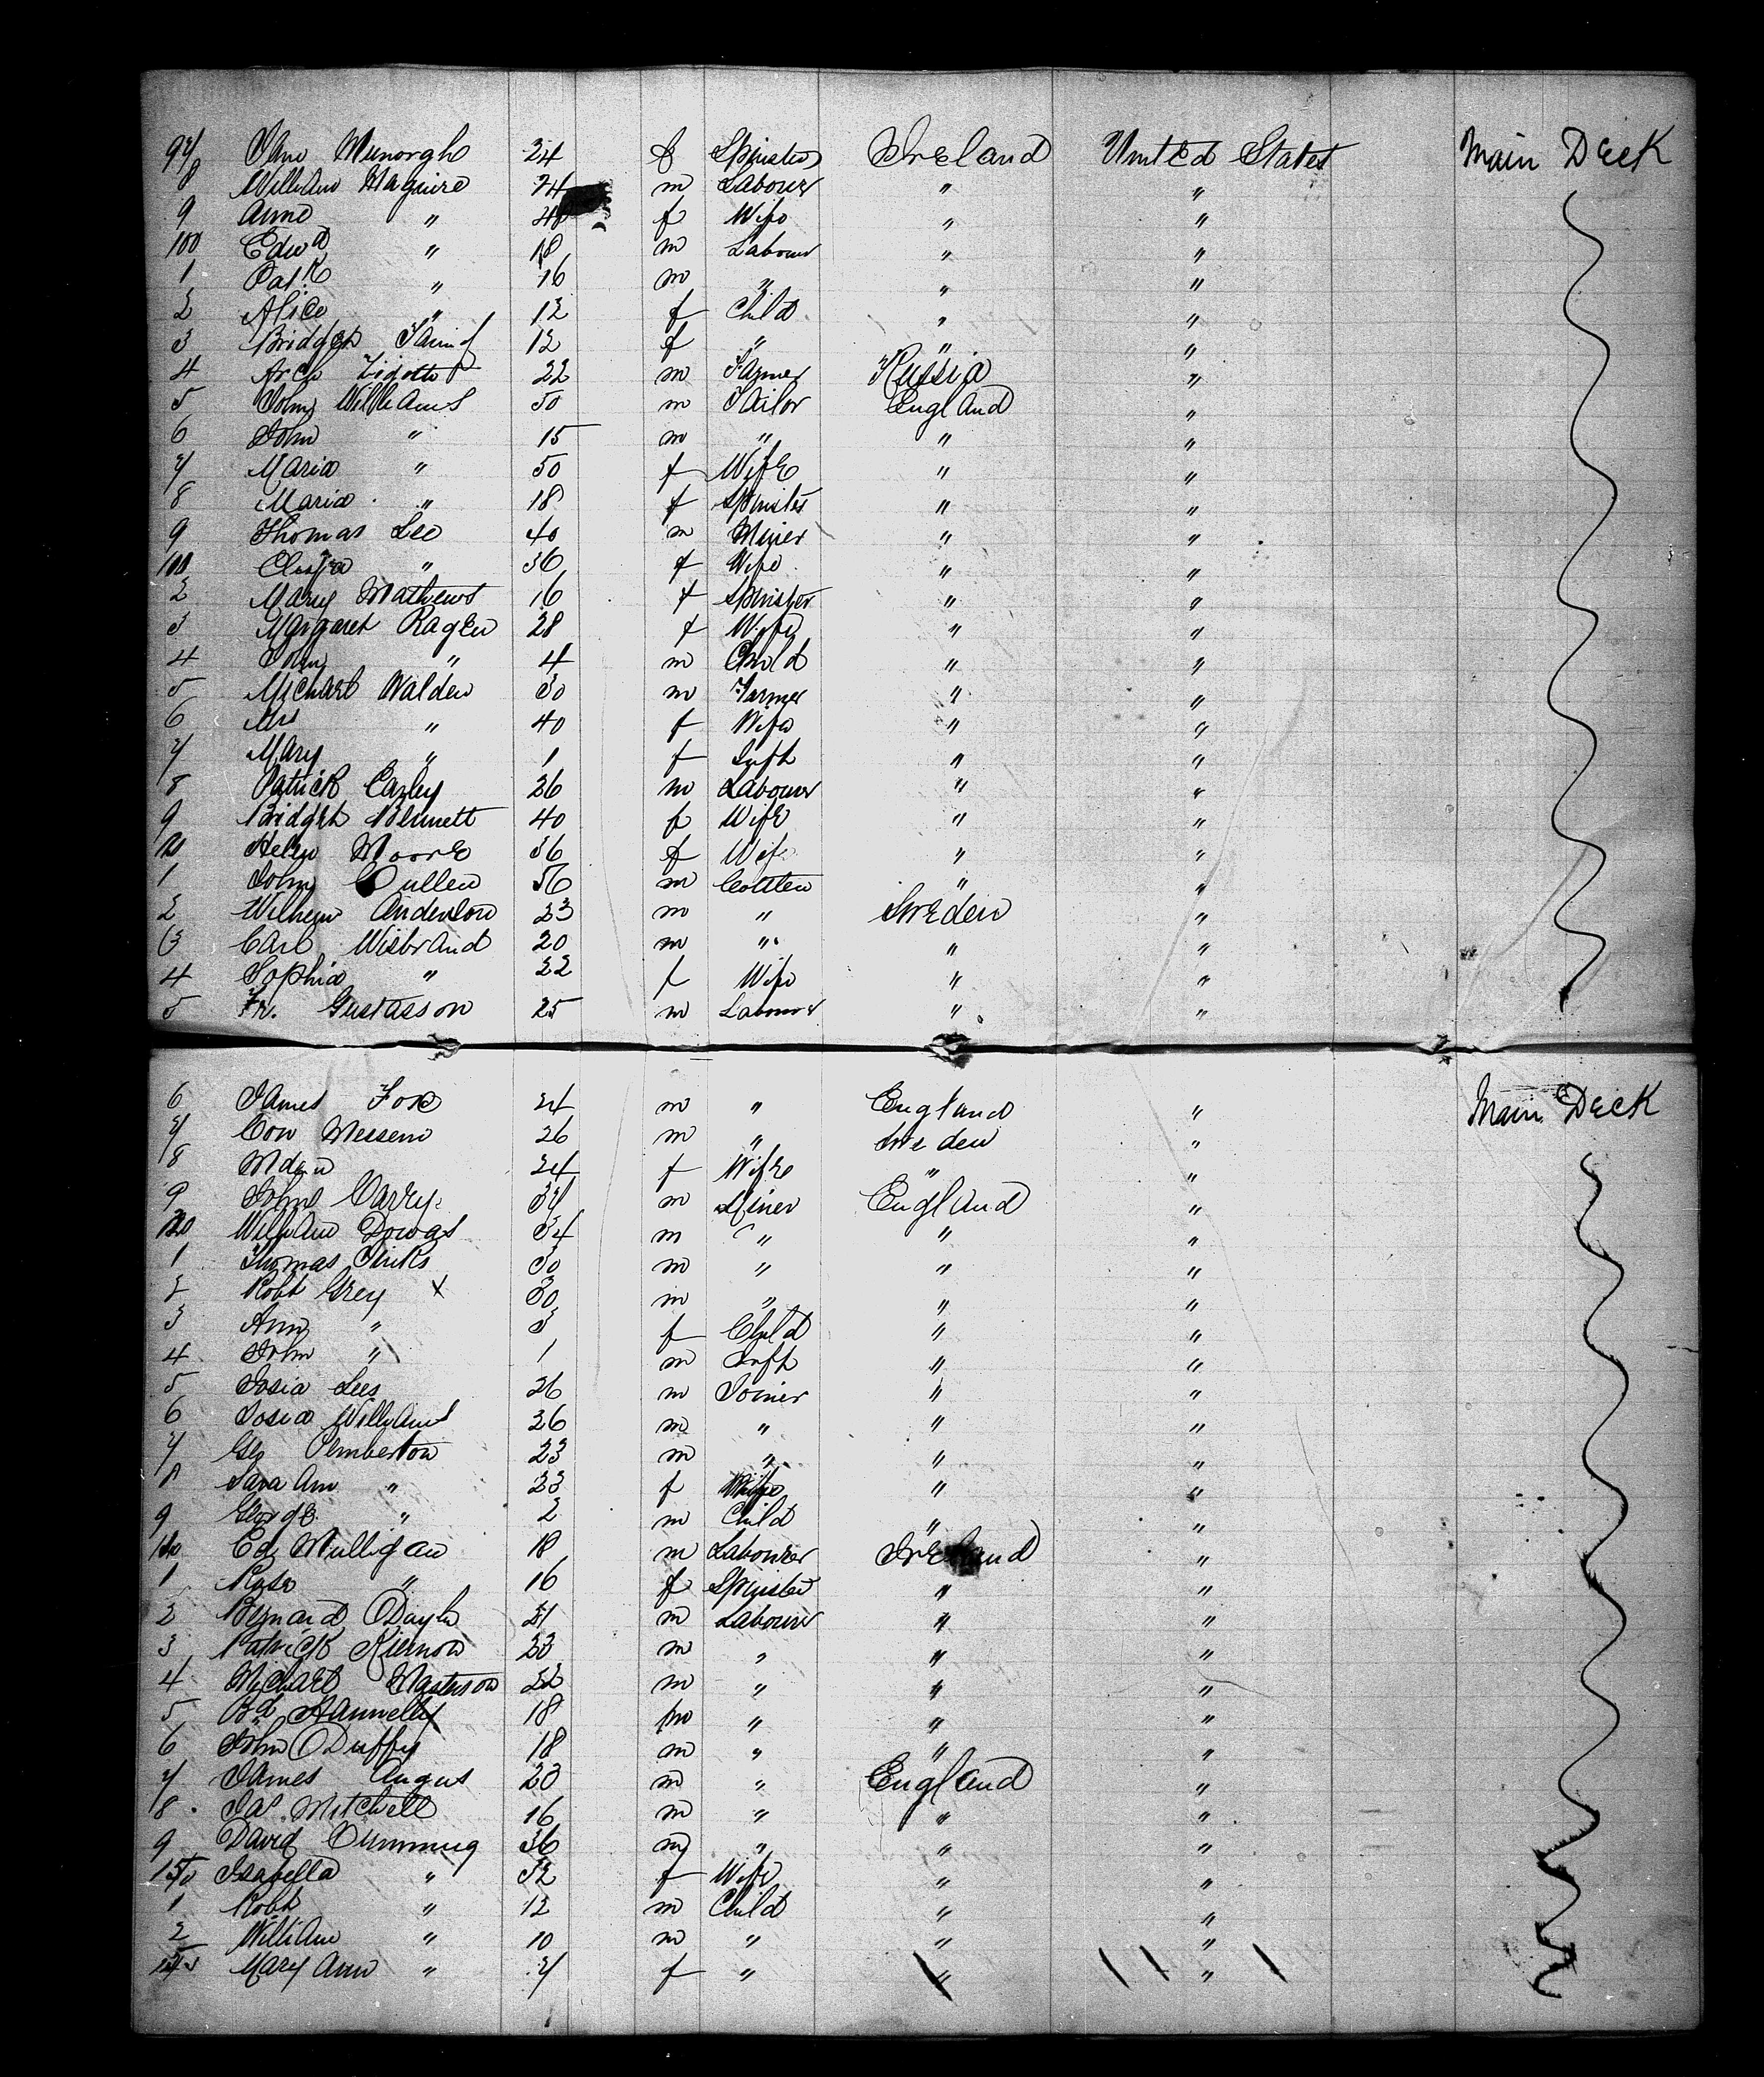 97 Jane 24 f Spinster Ireland United States Main Deck
8 William Maguire 24 m Labourer " "
9 Anne " 40 f Wife " "
100 Edwd " 18 m Labour " "
1 Patk " 16 m " " "
2 Alice " 12 f Child " "
3 Bridget 12 f " " "
4 Arch 22 m Farmer Russia "
5 John Williams 50 m Tailor England "
6 John " 15 m " " "
7 Maria " 50 f Wife " "
8 Maria " 18 f Spinster " "
9 Thomas Lee 40 m Miner " "
" 36 f Wife " "
2 Mary Mathews 16 f Spinster " "
3 Margaret Ragen 28 f Wife " "
4 John " 4 m Child " "
5 Michael Walden 30 m Farmer " "
6 Mrs " 40 f Wife " "
7 Mary " 1 f Inft " "
8 Patrick Earley 26 m Labourer " "
9 Bridget 40 f Wife " "
Helen Moore 36 f Wife " "
1 John Cullen 56 m " "
2 Wilhem Anderson 23 m " Sweden "
3 Carl Wisbrand 20 m " " "
4 Sophia " 22 f Wife " "
5 Fr. Gustasson 25 m Labourer " "
6 James Fox 24 m " England " Main Deck
7 Con Messen 26 m " Sweden "
8 24 f Wife " "
9 John Carry 37 m Miner England "
William Dowas 34 m " " "
1 Thomas 30 m " " "
2 Robt Grey x 30 m " " "
3 Ann " 3 f Child " "
4 John " 1 m Inft " "
5 Josia Lees 26 m Joiner " "
6 Josia Williams 26 m " " "
7 Geo Pemberton 23 m " " "
8 Sara Ann " 23 f Wife " "
9 George " 2 m Child " "
140 Ed Mulligan 18 m Labourer Ireland "
1 Rose " 16 f Spinster " "
2 Bernard 21 m Labourer " "
3 Patrick Kiernon 23 m " " "
4 Michael Masterson 22 m " " "
5 Bd 18 m " " "
6 John Duffy 18 m " " "
7 James Angus 20 m " England "
8 Jas Mitchell 16 m " " "
9 David Cumming 36 m " " "
150 Isabella " 32 f Wife " "
1 Robt " 12 m Child " "
2 William " 10 m " " "
Mary Ann " 7 f " " "